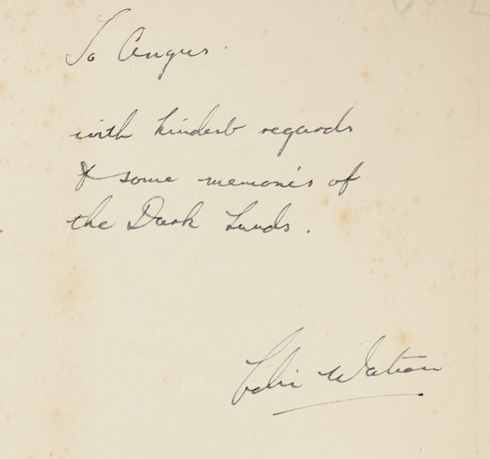 To Angus.
with kindest regards
& some memories of
the Dark Lands.
Colin Watson